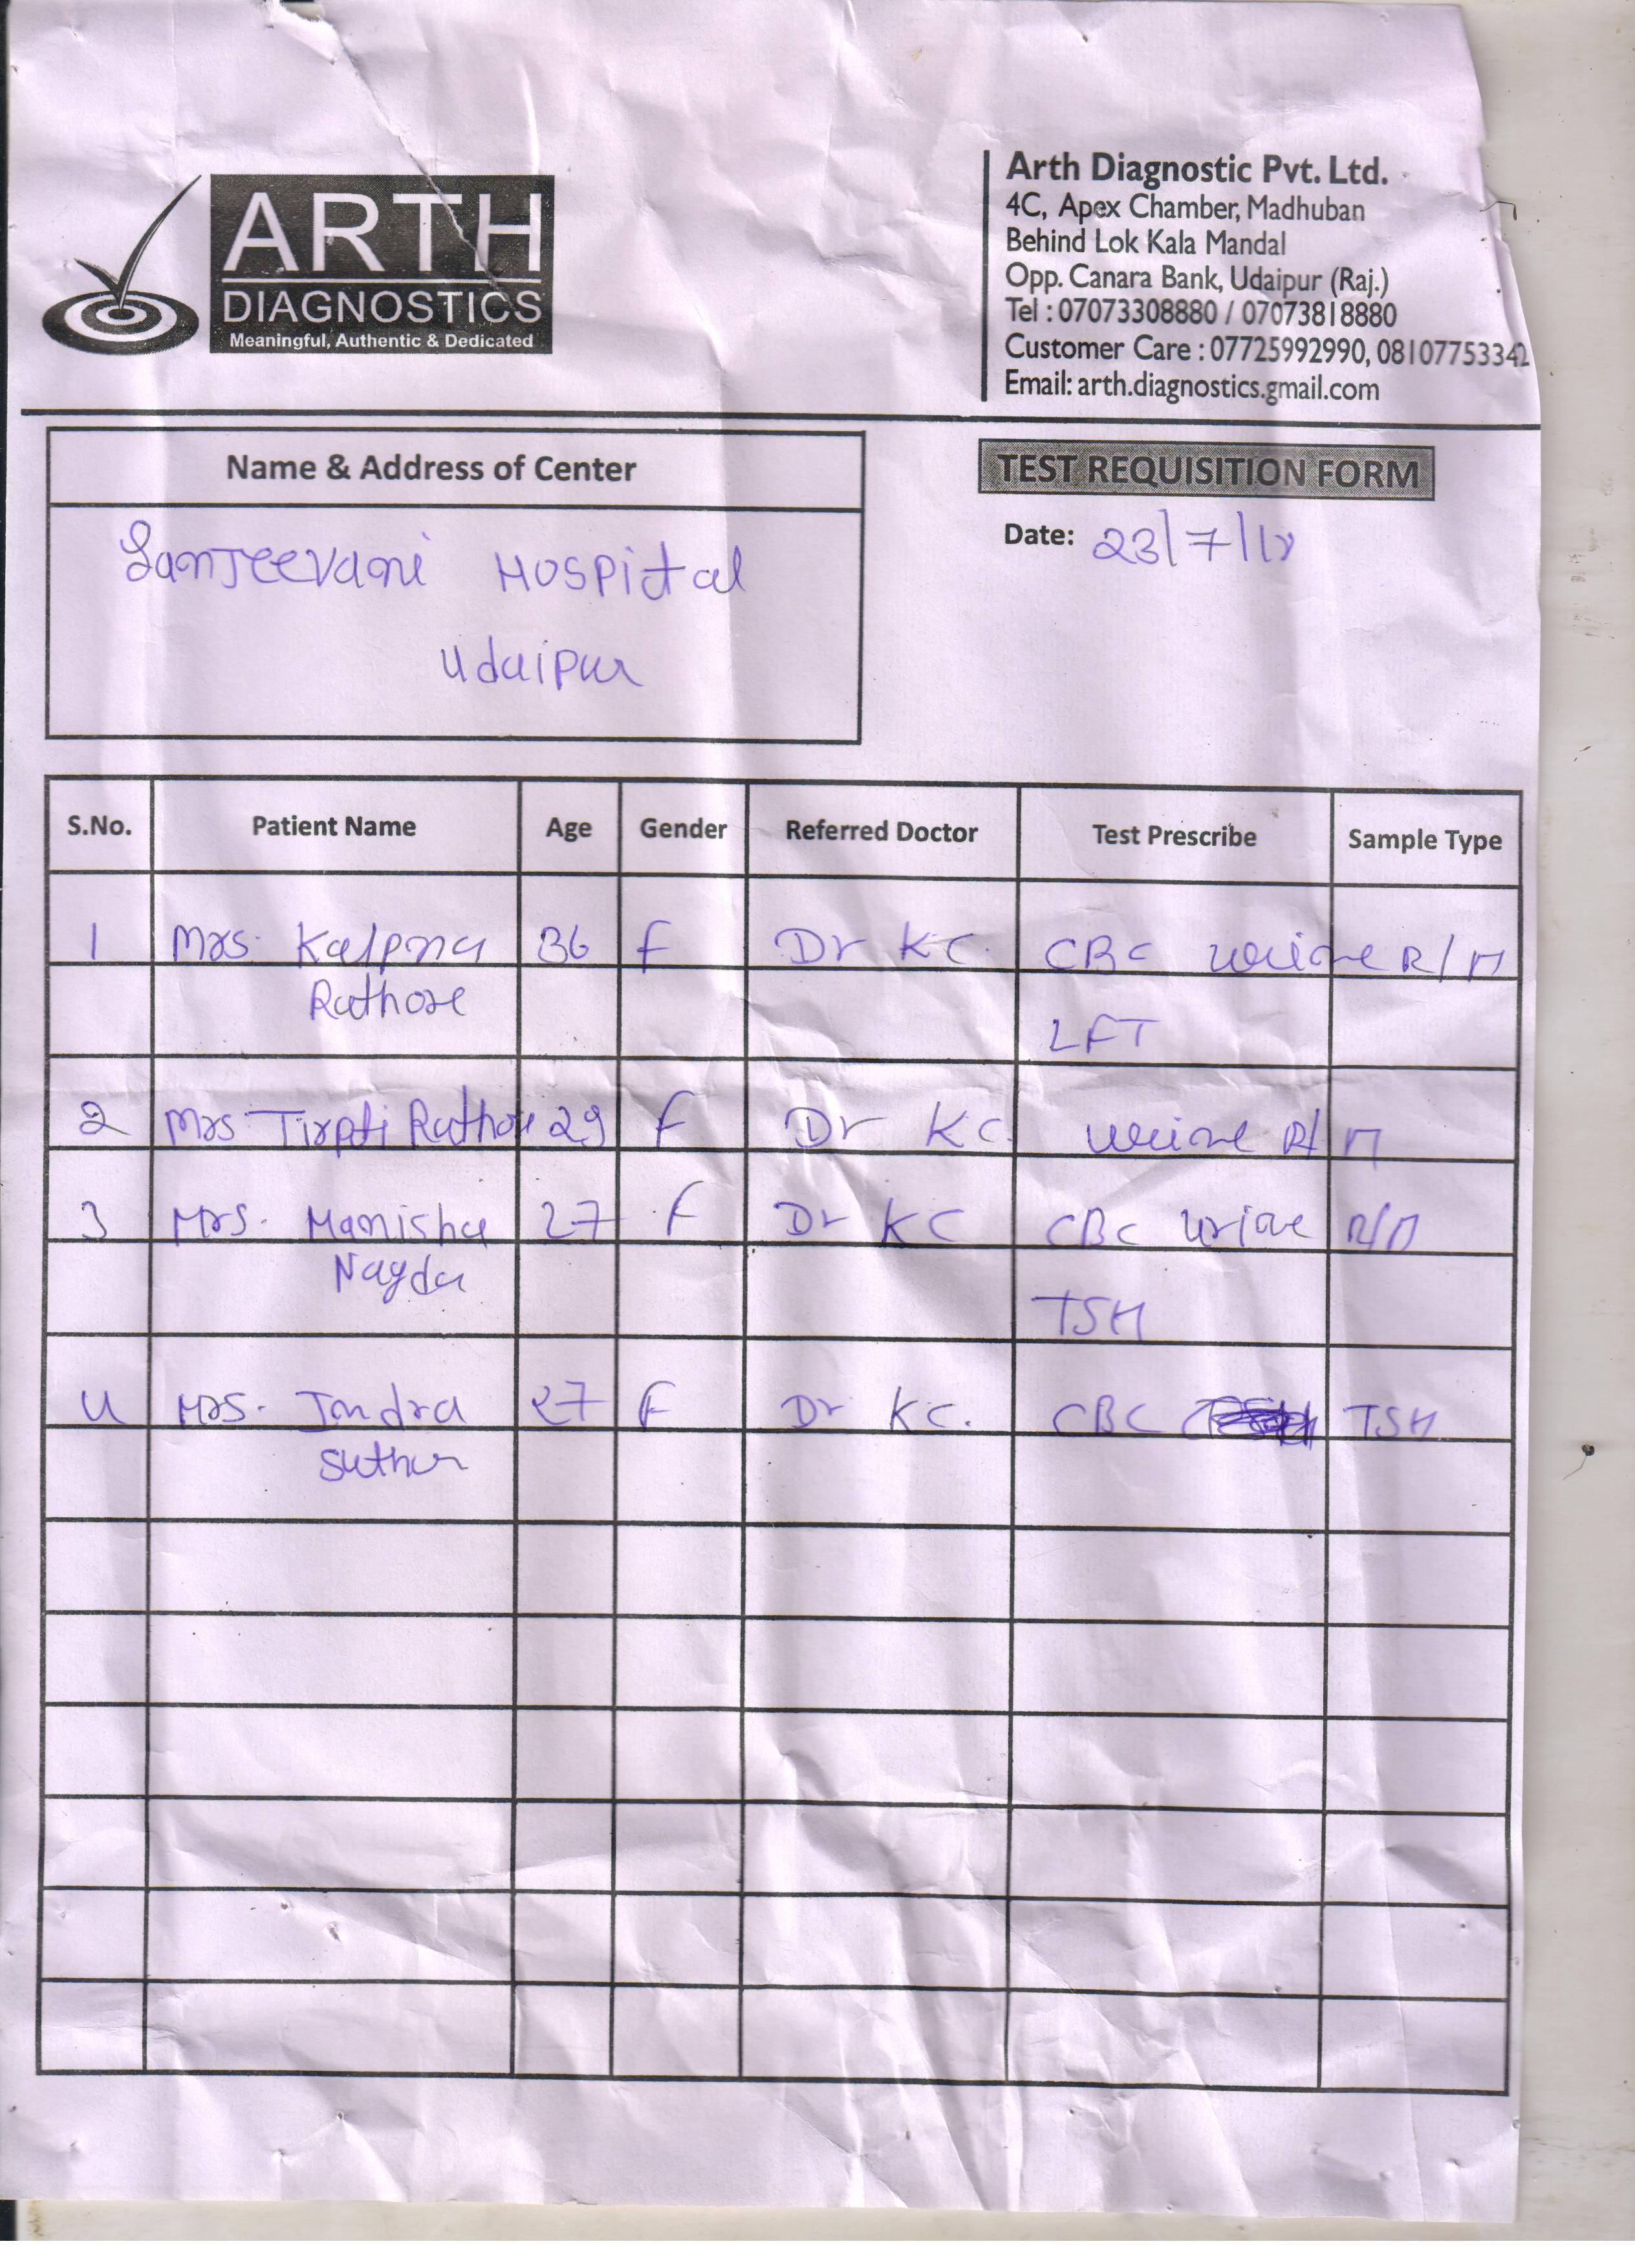 ARTH
DIAGNOSTICS
Meaningful, Authentic & Dedicated
Arth Diagnostic Pvt. Ltd.
4C, Apex Chamber, Madhuban
Behind Lok Kala Mandal
Opp. Canara Bank, Udaipur (Raj.)
Tel : 07073308880 / 07073818880
Customer Care : 07725992990, 08107753342
Email: arth.diagnostics.gmail.com
Name & Address of Center
Sanjeevani Hospital
Udaipur
TEST REQUISITION FORM
Date: 23/7/18
S.No. Patient Name Age Gender Referred Doctor Test Prescribe Sample Type
1 Mrs. Kalpna 36 F Dr KC. CBC urine R/M
Rathore
LFT
2 Mrs Tirpti Rathore 29 F Dr KC. urine R/M
3 Mrs. Manisha 27 F Dr KC CBC urine R/M
Nagda
TSH
4 Mrs. Indra 27 F Dr KC. CBC TSH
Suthar